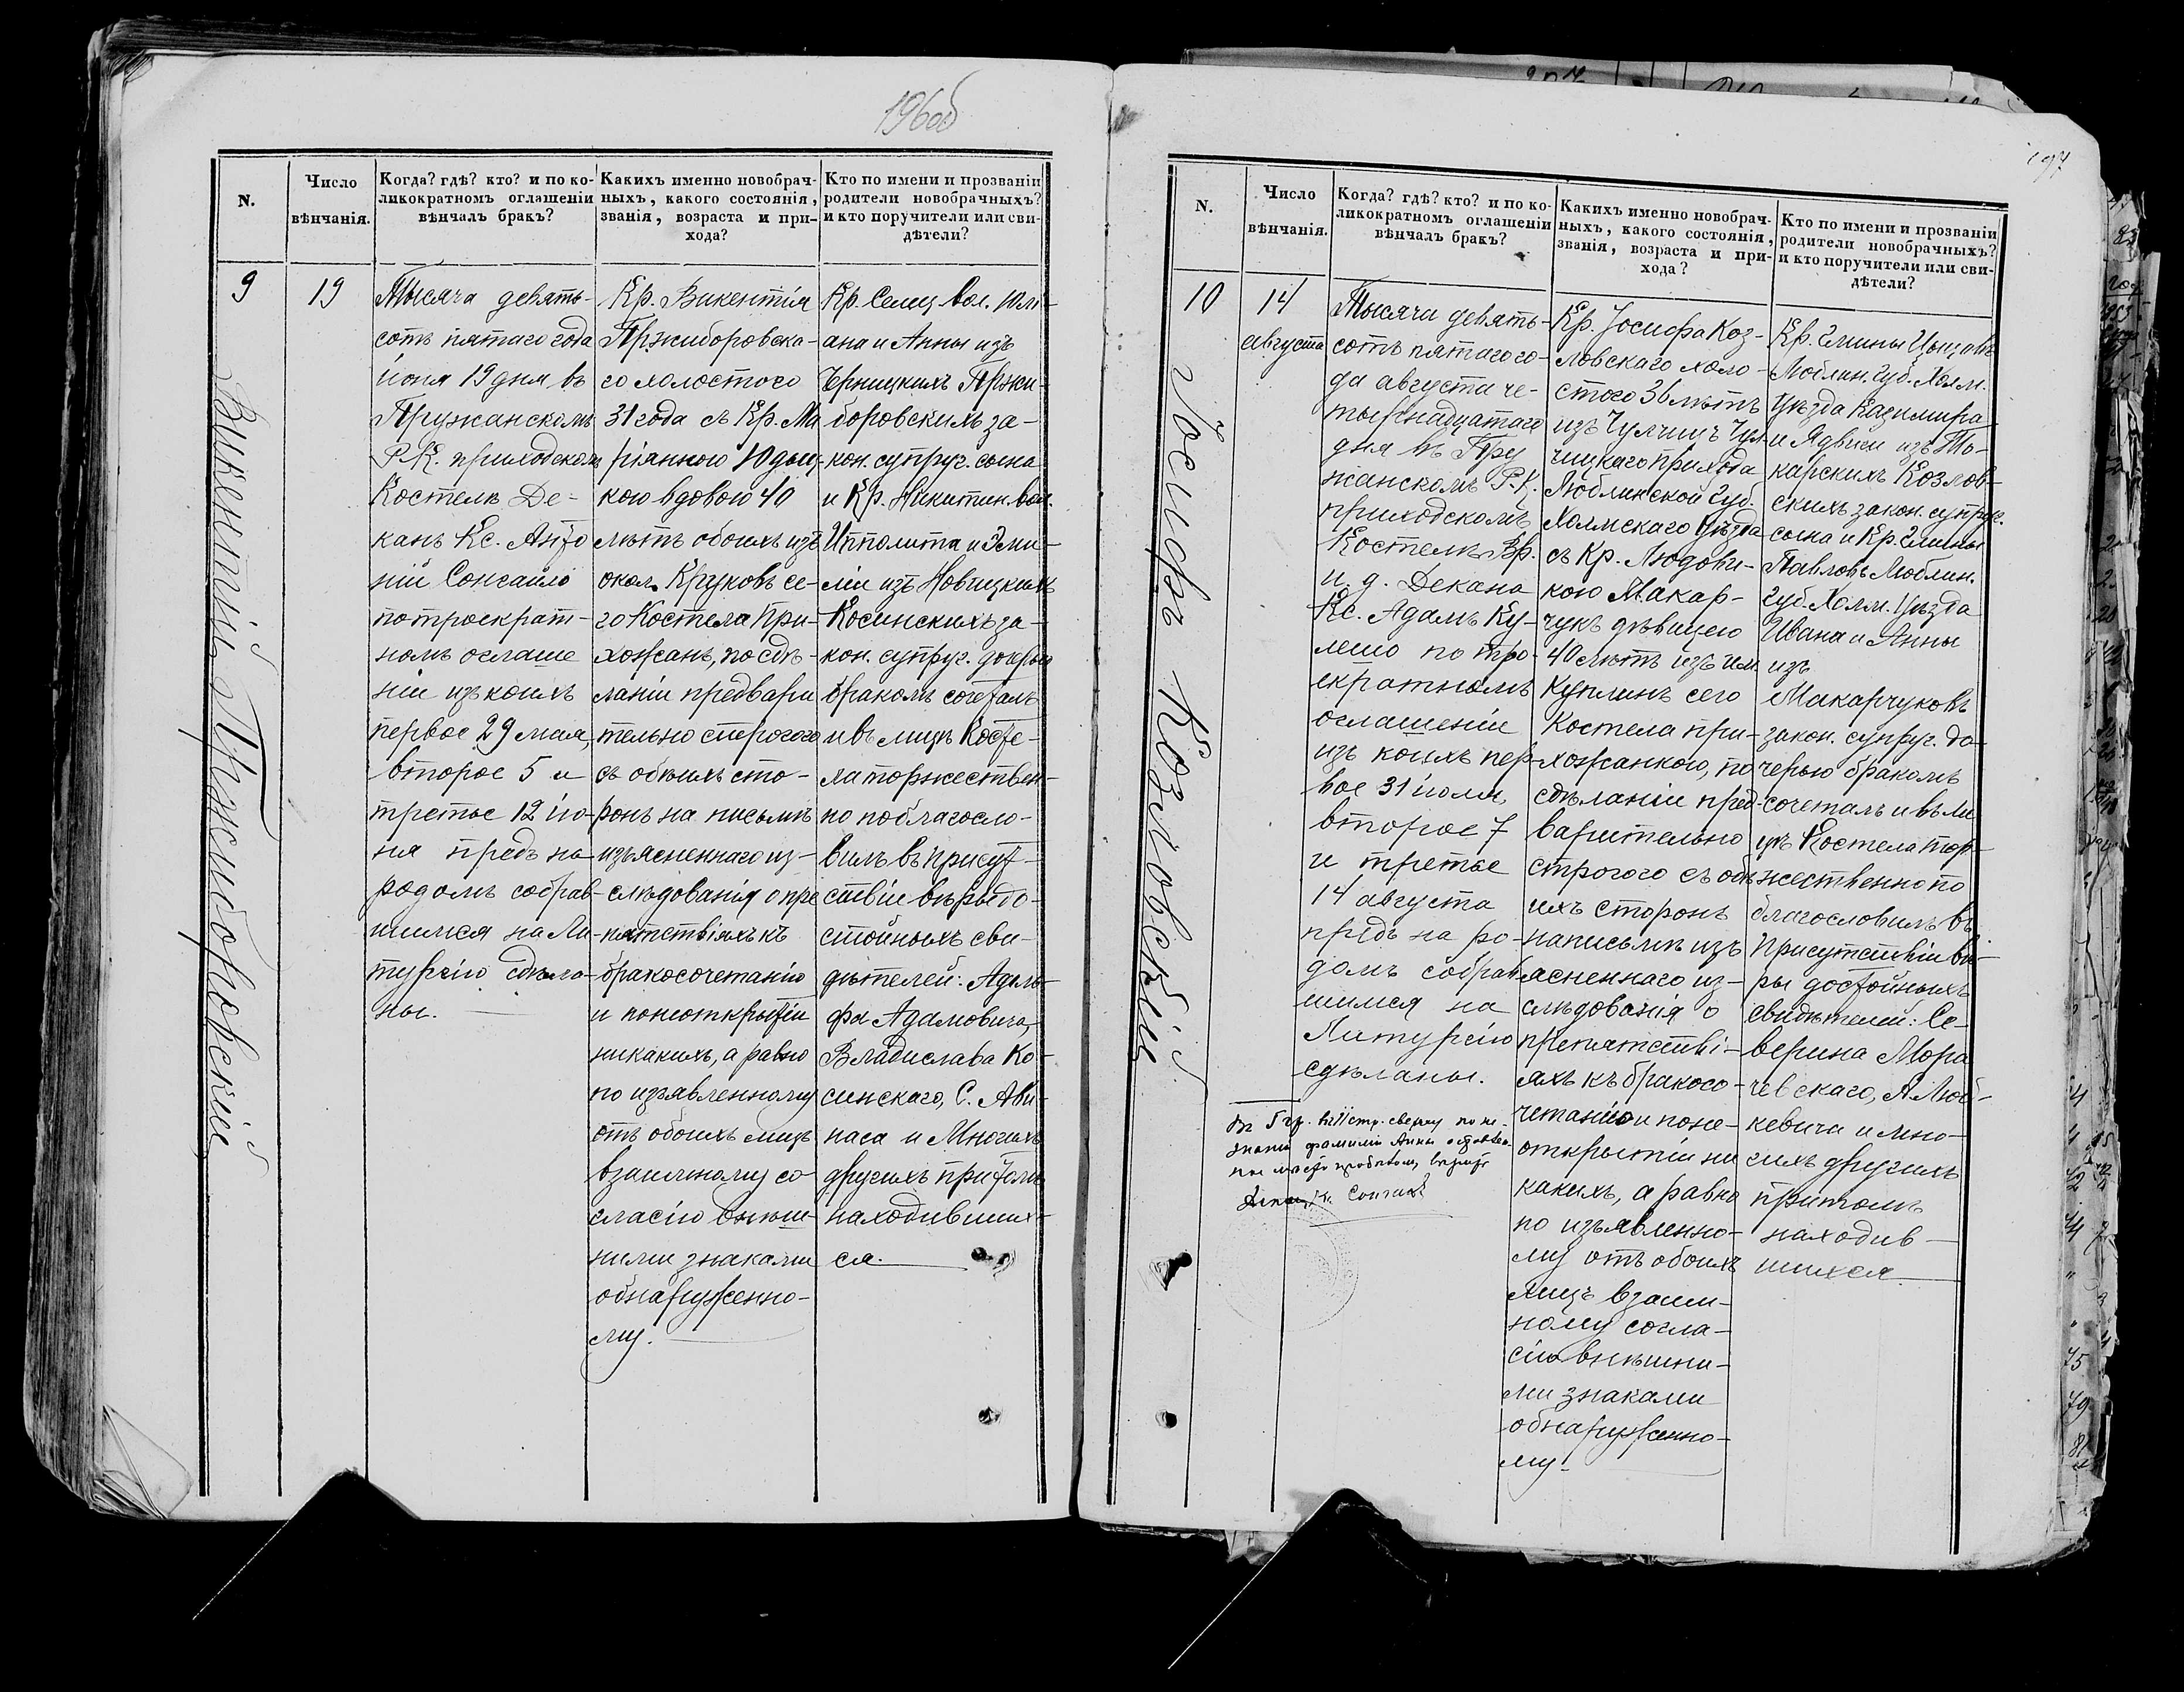 196об
N.
Число
вѣнчанія.
Когда? гдѣ? кто? и по ко-
ликократномъ оглашеніи
вѣнчалъ бракъ?
Какихъ именно новобрач-
ныхъ, какого состоянія,
званія, возраста и при-
хода?
Кто по имени и прозванію
родители новобрачныхъ?
и кто поручители или сви-
дѣтели?
Викентій Пржиборовскій
9
19
Тысяча девять-
сотъ пятаго года
іюня 19 дня въ
Пружанскомъ
Р.К. приходскомъ
Костелѣ Де-
канъ Кс. Анто
ній Сонгайло
по троекрат-
номъ оглаше
ніи изъ коихъ
первое 29 мая,
второе 5 и
третье 12 ію-
ня предъ на-
родомъ собрав-
шимся на Ли-
тургію сдѣла-
ны.
Кр. Викентія
Пржиборовска-
го холостого
31 года съ Кр. Ма
ріанною Юдыц-
кою вдовою 40
лѣтъ обоихъ изъ
окол. Круковъ се-
го Костела При-
хожанъ, по сдѣ-
ланіи предвари
тельно строгого
съ обѣихъ сто-
ронъ на письмѣ
изъясненнаго из-
слѣдованія о пре
пятствіяхъ къ
бракосочетанію
и понеоткрытіи
никакихъ, а равно
по изъявленному
отъ обоихъ лицъ
взаимному со-
гласію внѣш-
ними знаками
обнаруженно-
му.
Кр. Селец. вол. Юлі-
ана и Анны изъ
Черницкихъ Пржи-
боровскихъ за-
кон. супруг. сына
и Кр. Никитин. вол.
Ипполита и Эми-
ліи изъ Новицкихъ
Косинскихъ за-
кон. супруг. дочерью
бракомъ сочеталъ
и въ лицѣ Косте-
ла торжествен-
но поблагосло-
вилъ въ присут-
ствіи вѣры до-
стойныхъ сви-
дѣтелей: Адоль-
фа Адамовича,
Владислава Ко-
синскаго, С. Ави-
наса и Многихъ
другихъ при томъ
находивших-
ся.
197
N.
Число
вѣнчанія.
Когда? гдѣ? кто? и по ко-
ликократномъ оглашеніи
вѣнчалъ бракъ?
Какихъ именно новобрач-
ныхъ, какого состоянія,
званія, возраста и при-
хода?
Кто по имени и прозваніи
родители новобрачныхъ?
и кто поручители или сви-
дѣтели?
Іосифъ Козловскій
10
14
августа
Тысяча девять-
сотъ пятаго го-
да августа че-
тырнадцатаго
дня въ Пру
жанскомъ Р.К.
приходскомъ
Костелѣ Вр.
и. д. Декана
Кс. Адамъ Ку-
лешо по тро-
екратномъ
оглашеніи
изъ коихъ пер-
вое 31 іюля,
второе 7
и третье
14 августа
предъ на ро-
домъ собрав
шимся на
Литургію
сдѣланы.
Кр. Іосифа Коз-
ловскаго холо-
стого 36 лѣтъ
изъ Чулчицъ Чул-
чицкаго прихода
Люблинской Губ.
Холмскаго Уѣзда
съ Кр. Людови-
кою Макар-
чукъ дѣвицею
40 лѣтъ изъ им.
Куплинъ сего
Костела при-
хожанкою, по
сдѣланіи пред-
варительно
строгого съ обѣ
ихъ сторонъ
написьмѣ изъ
ясненнаго из-
слѣдованія о
препятстві-
яхъ къ бракосо-
четанію и поне-
открытіи ни
какихъ, а равно
по изъявленно-
му отъ обоихъ
лицъ взаим-
ному согла-
сію внѣшни-
ми знаками
обнаруженно-
му.
Кр. Гмины Цыцовъ
Люблин. Губ. Холм.
Уѣзда Казимира
и Ядвиги изъ То-
карскихъ Козлов-
скихъ закон. супруг.
сына и Кр. Гмины
Павловъ Люблин.
Губ. Холм. Уѣзда
Ивана и Анны
изъ
Макарчуковъ
закон. супруг. до-
черью бракомъ
сочеталъ и въ ли
цѣ Костела тор-
жественно по
благословилъ въ
Присутствіи вѣ-
ры достойныхъ
свидѣтелей: Се-
верина Мора
чевскаго, А. Люб-
кевича и мно-
гихъ другихъ
притомъ
находив-
шихся.
Въ 5 гр. 11 стр. сверху по не-
знанію фамиліи Анны оставлен-
ное мѣсто